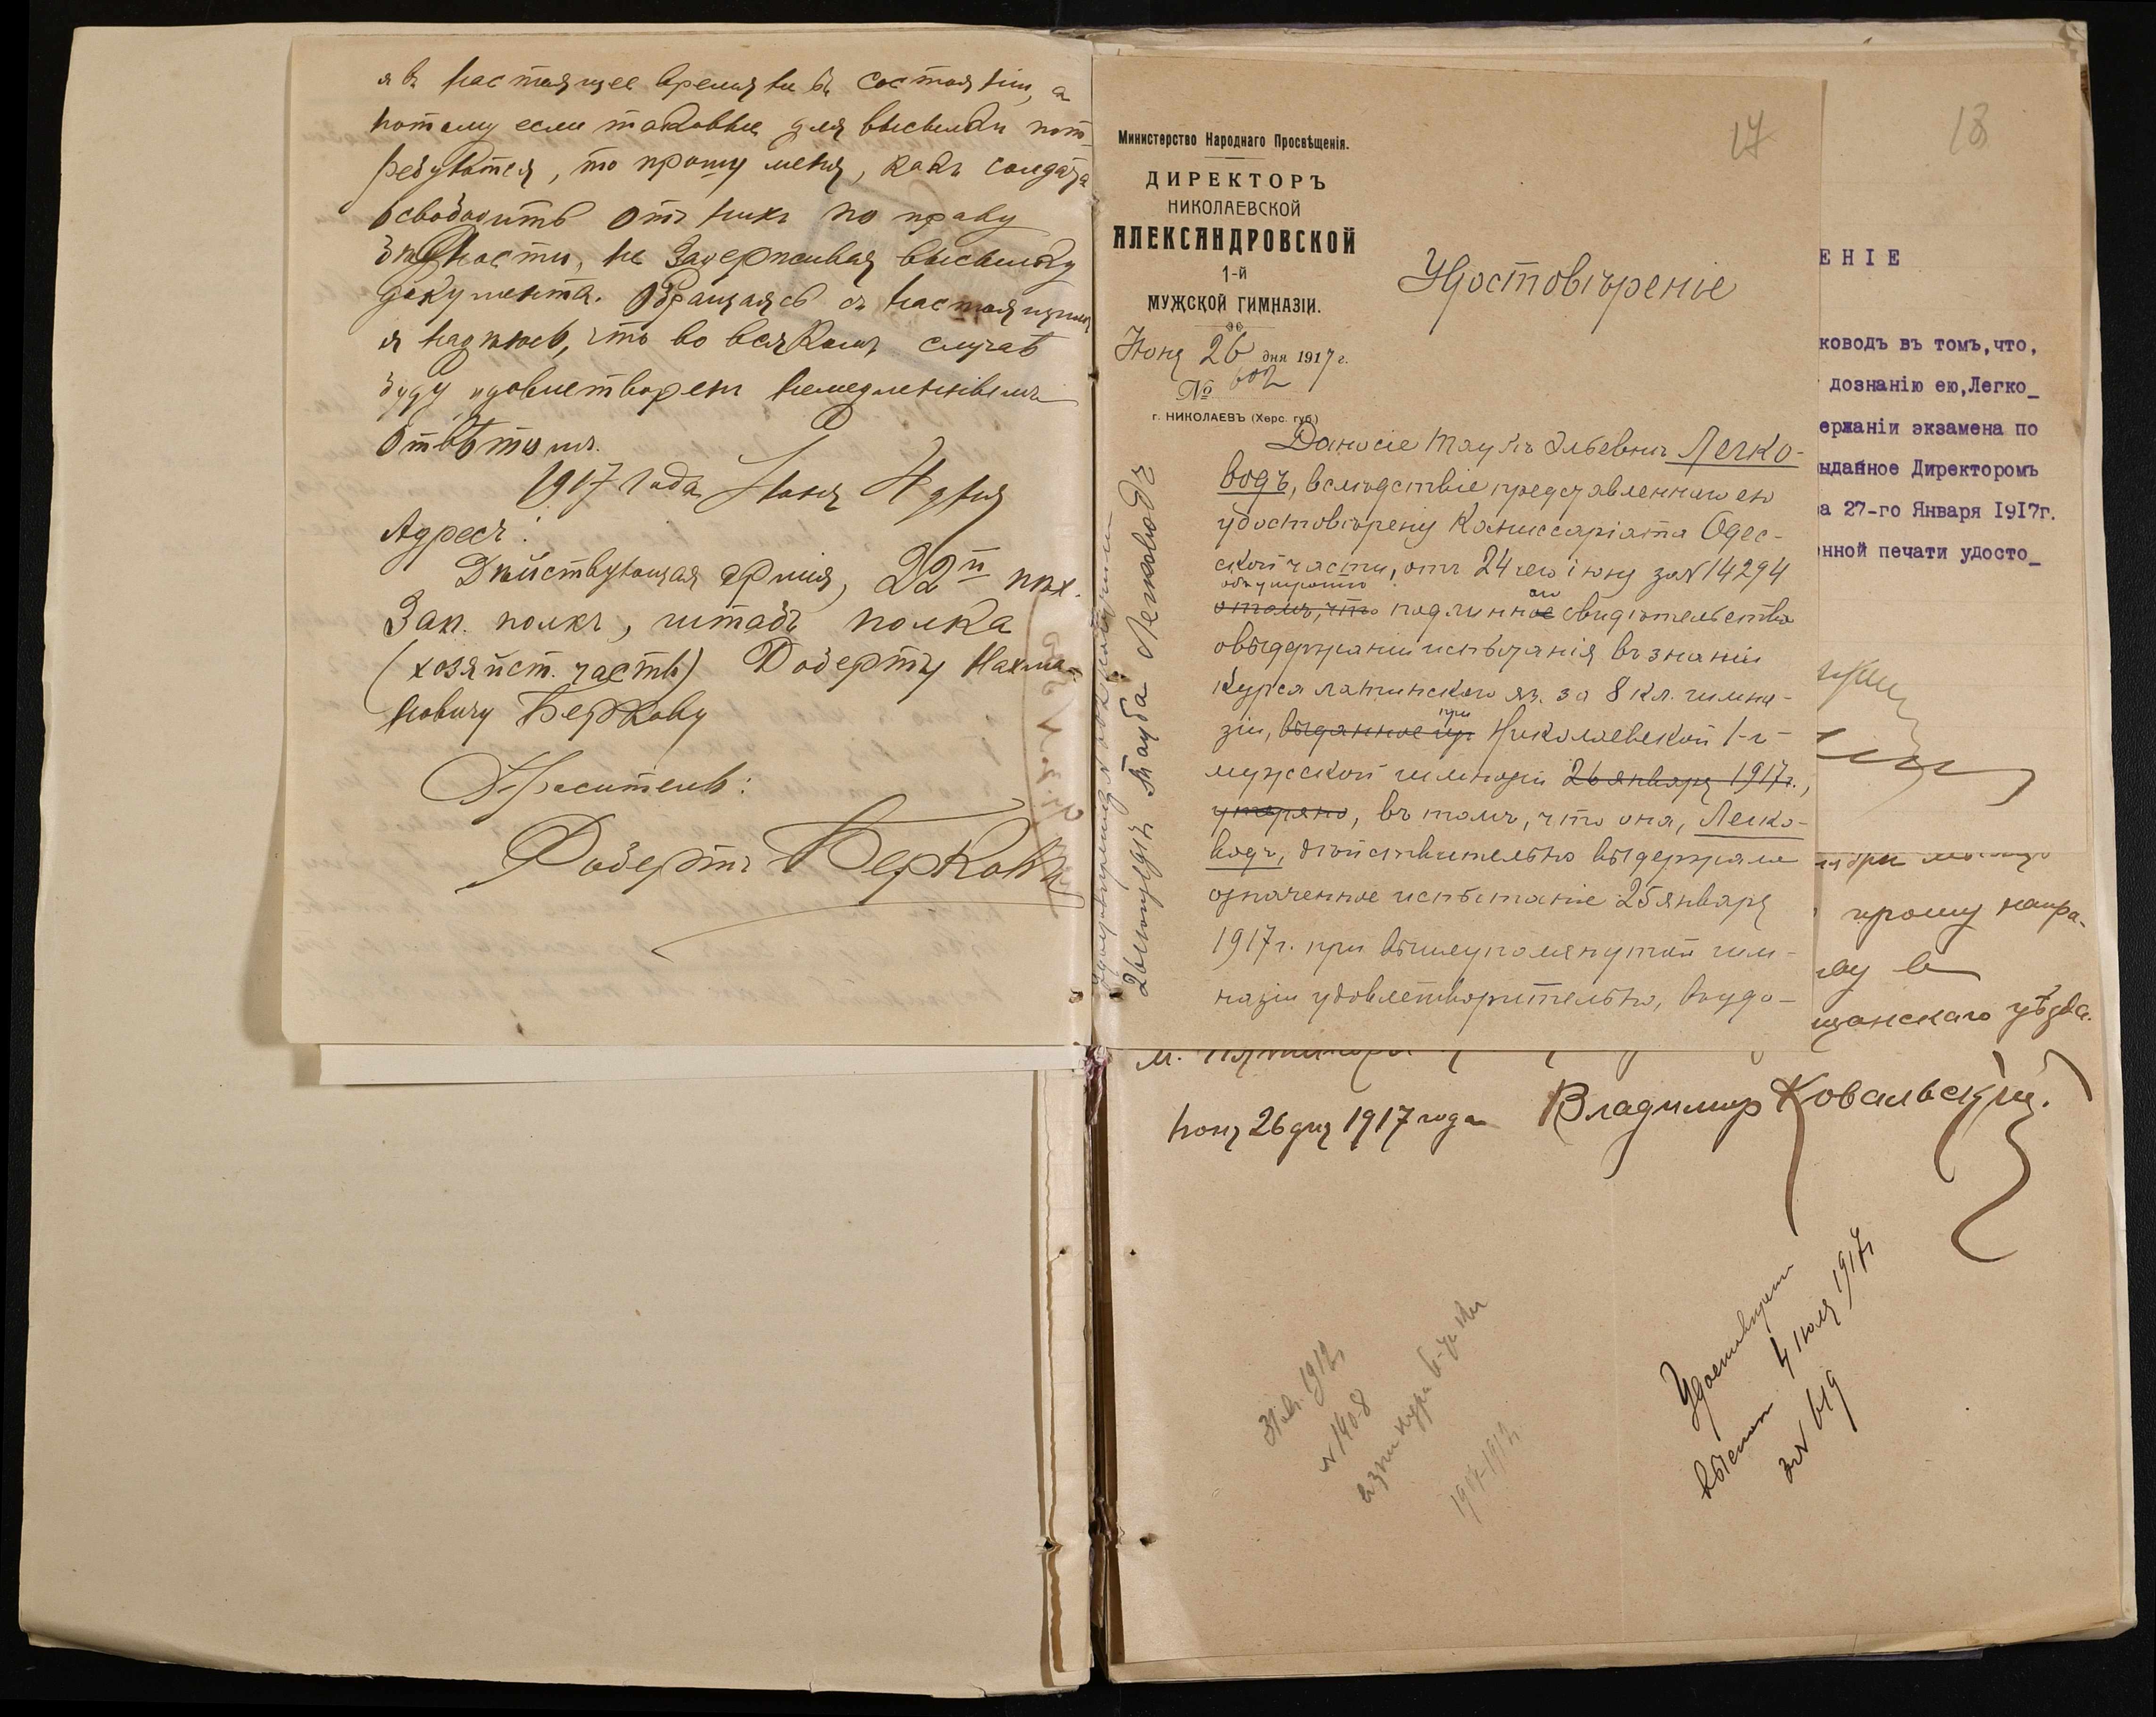 я въ настоящее время не въ состояніи, а
потому если таковые для высылки пот-
ребуются, то прошу меня, какъ солдата
освободить отъ нихъ по праву
бѣдности, не задерживая высылку
документа. Обращаясь съ настоящимъ
я надѣюсь, что во всякомъ случаѣ
буду удовлетворенъ немедленнымъ
отвѣтомъ.
1917 года Іюня 4 дня
Адресъ:
Дѣйствующая армія, 22й пѣх.
Зап. полкъ, штабъ полка
(хозяйст. часть) Роберту Нахма-
новичу Беркову
Проситель:
Робертъ Берковъ
17
Министерство Народнаго Просвѣщенія.
ДИРЕКТОРЪ
НИКОЛАЕВСКОЙ
АЛЕКСАНДРОВСКОЙ
1-й
МУЖСКОЙ ГИМНАЗІИ.
Іюня 26 дня 1917 г.
№ 602
г. НИКОЛАЕВЪ (Херс. губ.)
Удостовѣреніе
Дано сіе Таубѣ Эльевнѣ Легко-
водъ, вслѣдствіе представленнаго ею
удостовѣренія Комиссаріата Одес-
ской части, отъ 24 сего іюня за № 14294
объ утратѣ
о томъ, что подлиннoe свидѣтельства
о выдержаніи испытанія въ знаніи
курса латинскаго яз. за 8 кл. гимна-
при
зіи, выданное при Николаевской 1-й
мужской гимназіи 26 января 1917 г.,
утеряно, въ томъ, что она, Легко-
водъ, дѣйствительно выдержала
означенное испытаніе 25 января
1917 г. при вышеупомянутой гим-
назіи удовлетворительно, въ удо-
Тауба Легководъ
18
ЕНІЕ
ководъ въ томъ, что,
дознанію ею, Легко_
ержаніи экзамена по
ыданное Директоромъ
а 27-го Января 1917г.
нной печати удосто_
прошу напра-
щанскаго уѣзда.
Іюня 26 дня 1917 года Владимир Ковальскій.
№ 1408
1917-1912
Удостовѣрен
выслан 4 іюля 1917 г
за № 619